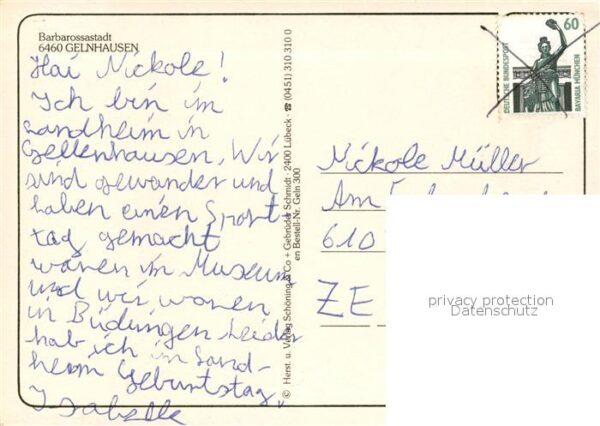 Barbarossastadt
6460 GELNHAUSEN
Hai Nickole!
Ich bin im
Landheim in
Gellenhausen, Wir
sind gewander und
haben einen Sport-
tag gemacht
waren im Museum
und wir waren
in Büdingen Leider
hab ich im Land-
heim Geburtstag.
Isabelle
© Herst. u. Verlag Schöning & Co + Gebrüder Schmidt · 2400 Lübeck · ☎ (0451) 310 310 0
en Bestell-Nr. Geln 300
60
DEUTSCHE BUNDESPOST
BAVARIA MÜNCHEN
Nickole Müller
Am
610
ZE
privacy protection
Datenschutz